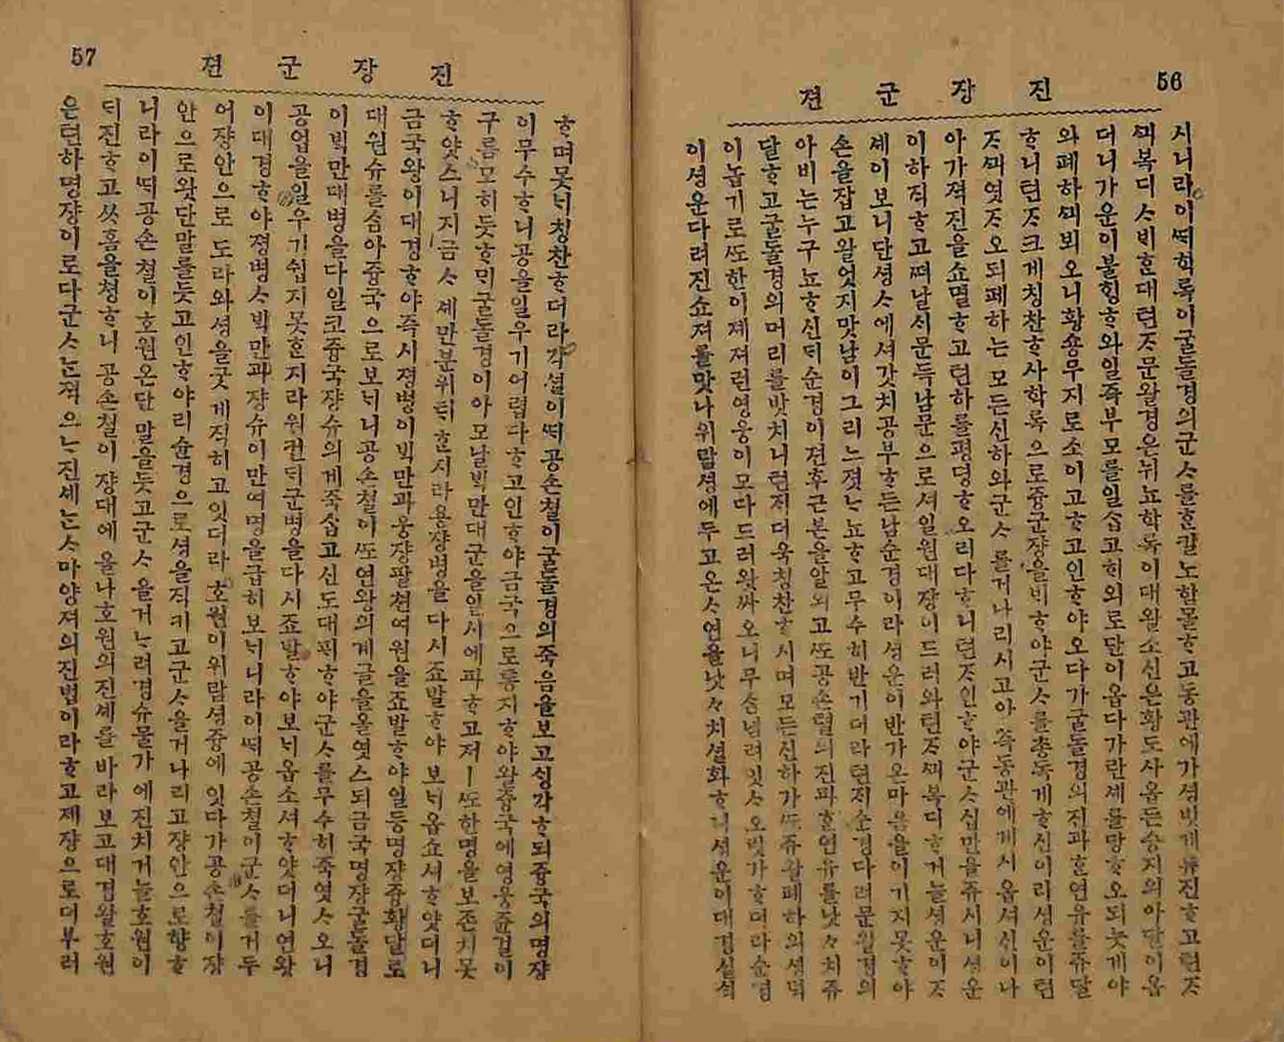 56
진 장 군 젼
시니라이ᄯᅥᆨ학룡이굴돌경의군ᄉᆞ를ᄒᆞᆫ칼노함몰ᄒᆞ고동관에가셩밧게류진ᄒᆞ고련ᄌᆞ
ᄭᅴ복디ᄉᆞᄇᆡᄒᆞᆫ대련ᄌᆞ문왈경은뉘뇨학룡이대왈소신은황도사옵든승지의아달이옵
더니가운이불ᄒᆡᆼᄒᆞ와일즉부모를일습고ᄒᆡ외로단이옵다가란셰를당ᄒᆞ오되늣게야
와폐하ᄭᅴ뵈오니황숑무지로소이고ᄒᆞ고인ᄒᆞ야오다가굴돌경의진파ᄒᆞᆫ연유를쥬달
ᄒᆞ니련ᄌᆞ크게칭찬ᄒᆞ사학룡으로즁군쟝을ᄇᆡᄒᆞ야군ᄉᆞ를총독게ᄒᆞ신이리셩운이련
ᄌᆞᄭᅴ엿ᄌᆞ오되폐하는모든신하와군ᄉᆞ를거나리시고아즉동관에게시옵셔신이나
아가젹진을쇼멸ᄒᆞ고련하를평뎡ᄒᆞ오리다ᄒᆞ니련ᄌᆞ인ᄒᆞ야군ᄉᆞ십만을쥬시니셩운
이하직ᄒᆞ고ᄯᅥ날ᄉᆡ문득남문으로셔일원대장이드러와련ᄌᆞᄭᅴ복디ᄒᆞ거늘셩운이ᄌᆞ
셰이보니단셩ᄉᆞ에셔갓치공부ᄒᆞ든남순경이라셩운이반가온마음을이기지못ᄒᆞ야
손을잡고왈엇지맛남이그리느졋ᄂᆞ뇨ᄒᆞ고무수히반기더라련ᄌᆞㅣ순경다려문왈경의
아비는누구뇨ᄒᆞ신ᄃᆡ순경이젼후근본을알외고ᄯᅩ공손렬의진파ᄒᆞᆫ연유를낫낫치쥬
달ᄒᆞ고굴돌경의머리를밧치니련ᄌᆞㅣ더욱칭찬ᄒᆞ시며모든신하가ᄯᅩ쥬왈폐하의셩덕
이놉기로ᄯᅩ한이제져런영웅이모다드러왓싸오니무슴념려잇ᄉᆞ오릿가ᄒᆞ더라순경
이셩운다려진쇼져를맛나위람셩에두고온ᄉᆞ연을낫낫치셜화ᄒᆞ니셩운이대경실ᄉᆡᆨ
57
진 장 군 젼
ᄒᆞ며못ᄂᆡ칭찬ᄒᆞ더라각셜이ᄯᅥᆨ공손쳘이굴돌경의죽음을보고ᄉᆡᆼ각ᄒᆞ되즁국의명쟝
이무수ᄒᆞ니공을일우기어렵다ᄒᆞ고인ᄒᆞ야금국으로통지ᄒᆞ야왈즁국에영웅쥰걸이
구름모히듯ᄒᆞᄆᆡ굴돌경이아모날ᄇᆡᆨ만대군을일시에파ᄒᆞ고져ㅣᄯᅩ한명을보존치못
ᄒᆞ얏스니지금ᄉᆞ셰만분위ᄐᆡᄒᆞᆫ지라용쟝병을다시죠발ᄒᆞ야보ᄂᆡ옵쇼셔ᄒᆞ얏더니
금국왕이대경ᄒᆞ야즉시졍병이ᄇᆡᆨ만과웅쟝팔쳔여원을죠발ᄒᆞ야일등명쟝즁황달로
대원슈를삼아즁국으로보ᄂᆡ니공손쳘이ᄯᅩ연왕의게글을올엿스되금국명쟝굴돌경
이ᄇᆡᆨ만대병을다일코즁국쟝슈의게죽삽고신도대ᄑᆡᄒᆞ야군ᄉᆞ를무수히죽엿ᄉᆞ오니
공업을일우기쉽지못ᄒᆞᆫ지라원컨ᄃᆡ군병을다시죠발ᄒᆞ야보ᄂᆡ옵소셔ᄒᆞ얏더니연왕
이대경ᄒᆞ야졍병ᄉᆞᄇᆡᆨ만과쟝슈이만여명을급히보ᄂᆡ니라이ᄯᅥᆨ공손쳘이군ᄉᆞ를거두
어쟝안으로도라와셩을굿게직히고잇더라호원이위람셩즁에잇다가공손쳘이쟝
안으로왓단말를듯고인ᄒᆞ야리슌경으로셩을직키고군ᄉᆞ을거나리고쟝안으로향ᄒᆞ
니라이ᄯᅥᆨ공손쳘이호원온단말을듯고군ᄉᆞ을거ᄂᆞ려경슈물가에진치거늘호원이
ᄃᆡ진ᄒᆞ고ᄊᆞ홈을쳥ᄒᆞ니 공손쳘이쟝대에올나호원의진셰를바라보고대경왈호원
은련하명쟝이로다군ᄉᆞᄂᆞᆫ젹으ᄂᆞ진셰ᄂᆞᆫᄉᆞ마양져의진법이라ᄒᆞ고졔쟝으로더부러